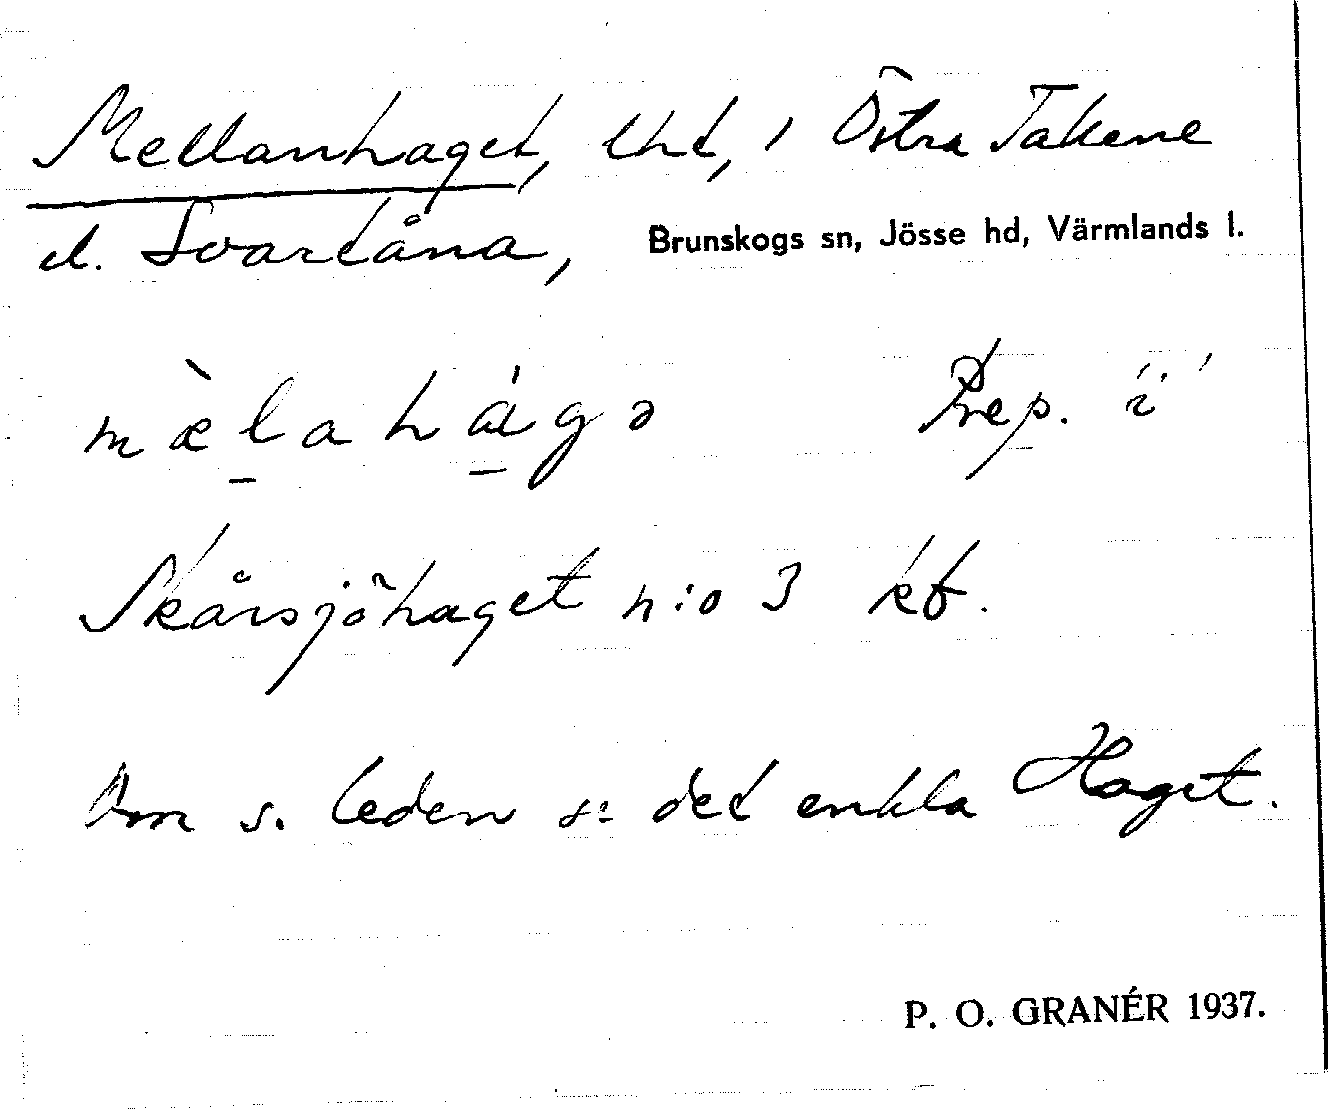 Mellanhaget, lht, i Östra Takene
el. Svartåna, Brunskogs sn, Jösse hd, Värmlands l.
mæ̀lahágə Prep. i
Skårsjöhaget n:o 3 kb.
Om s. leden se det enkla Haget.
P. O. GRANÉR 1937.